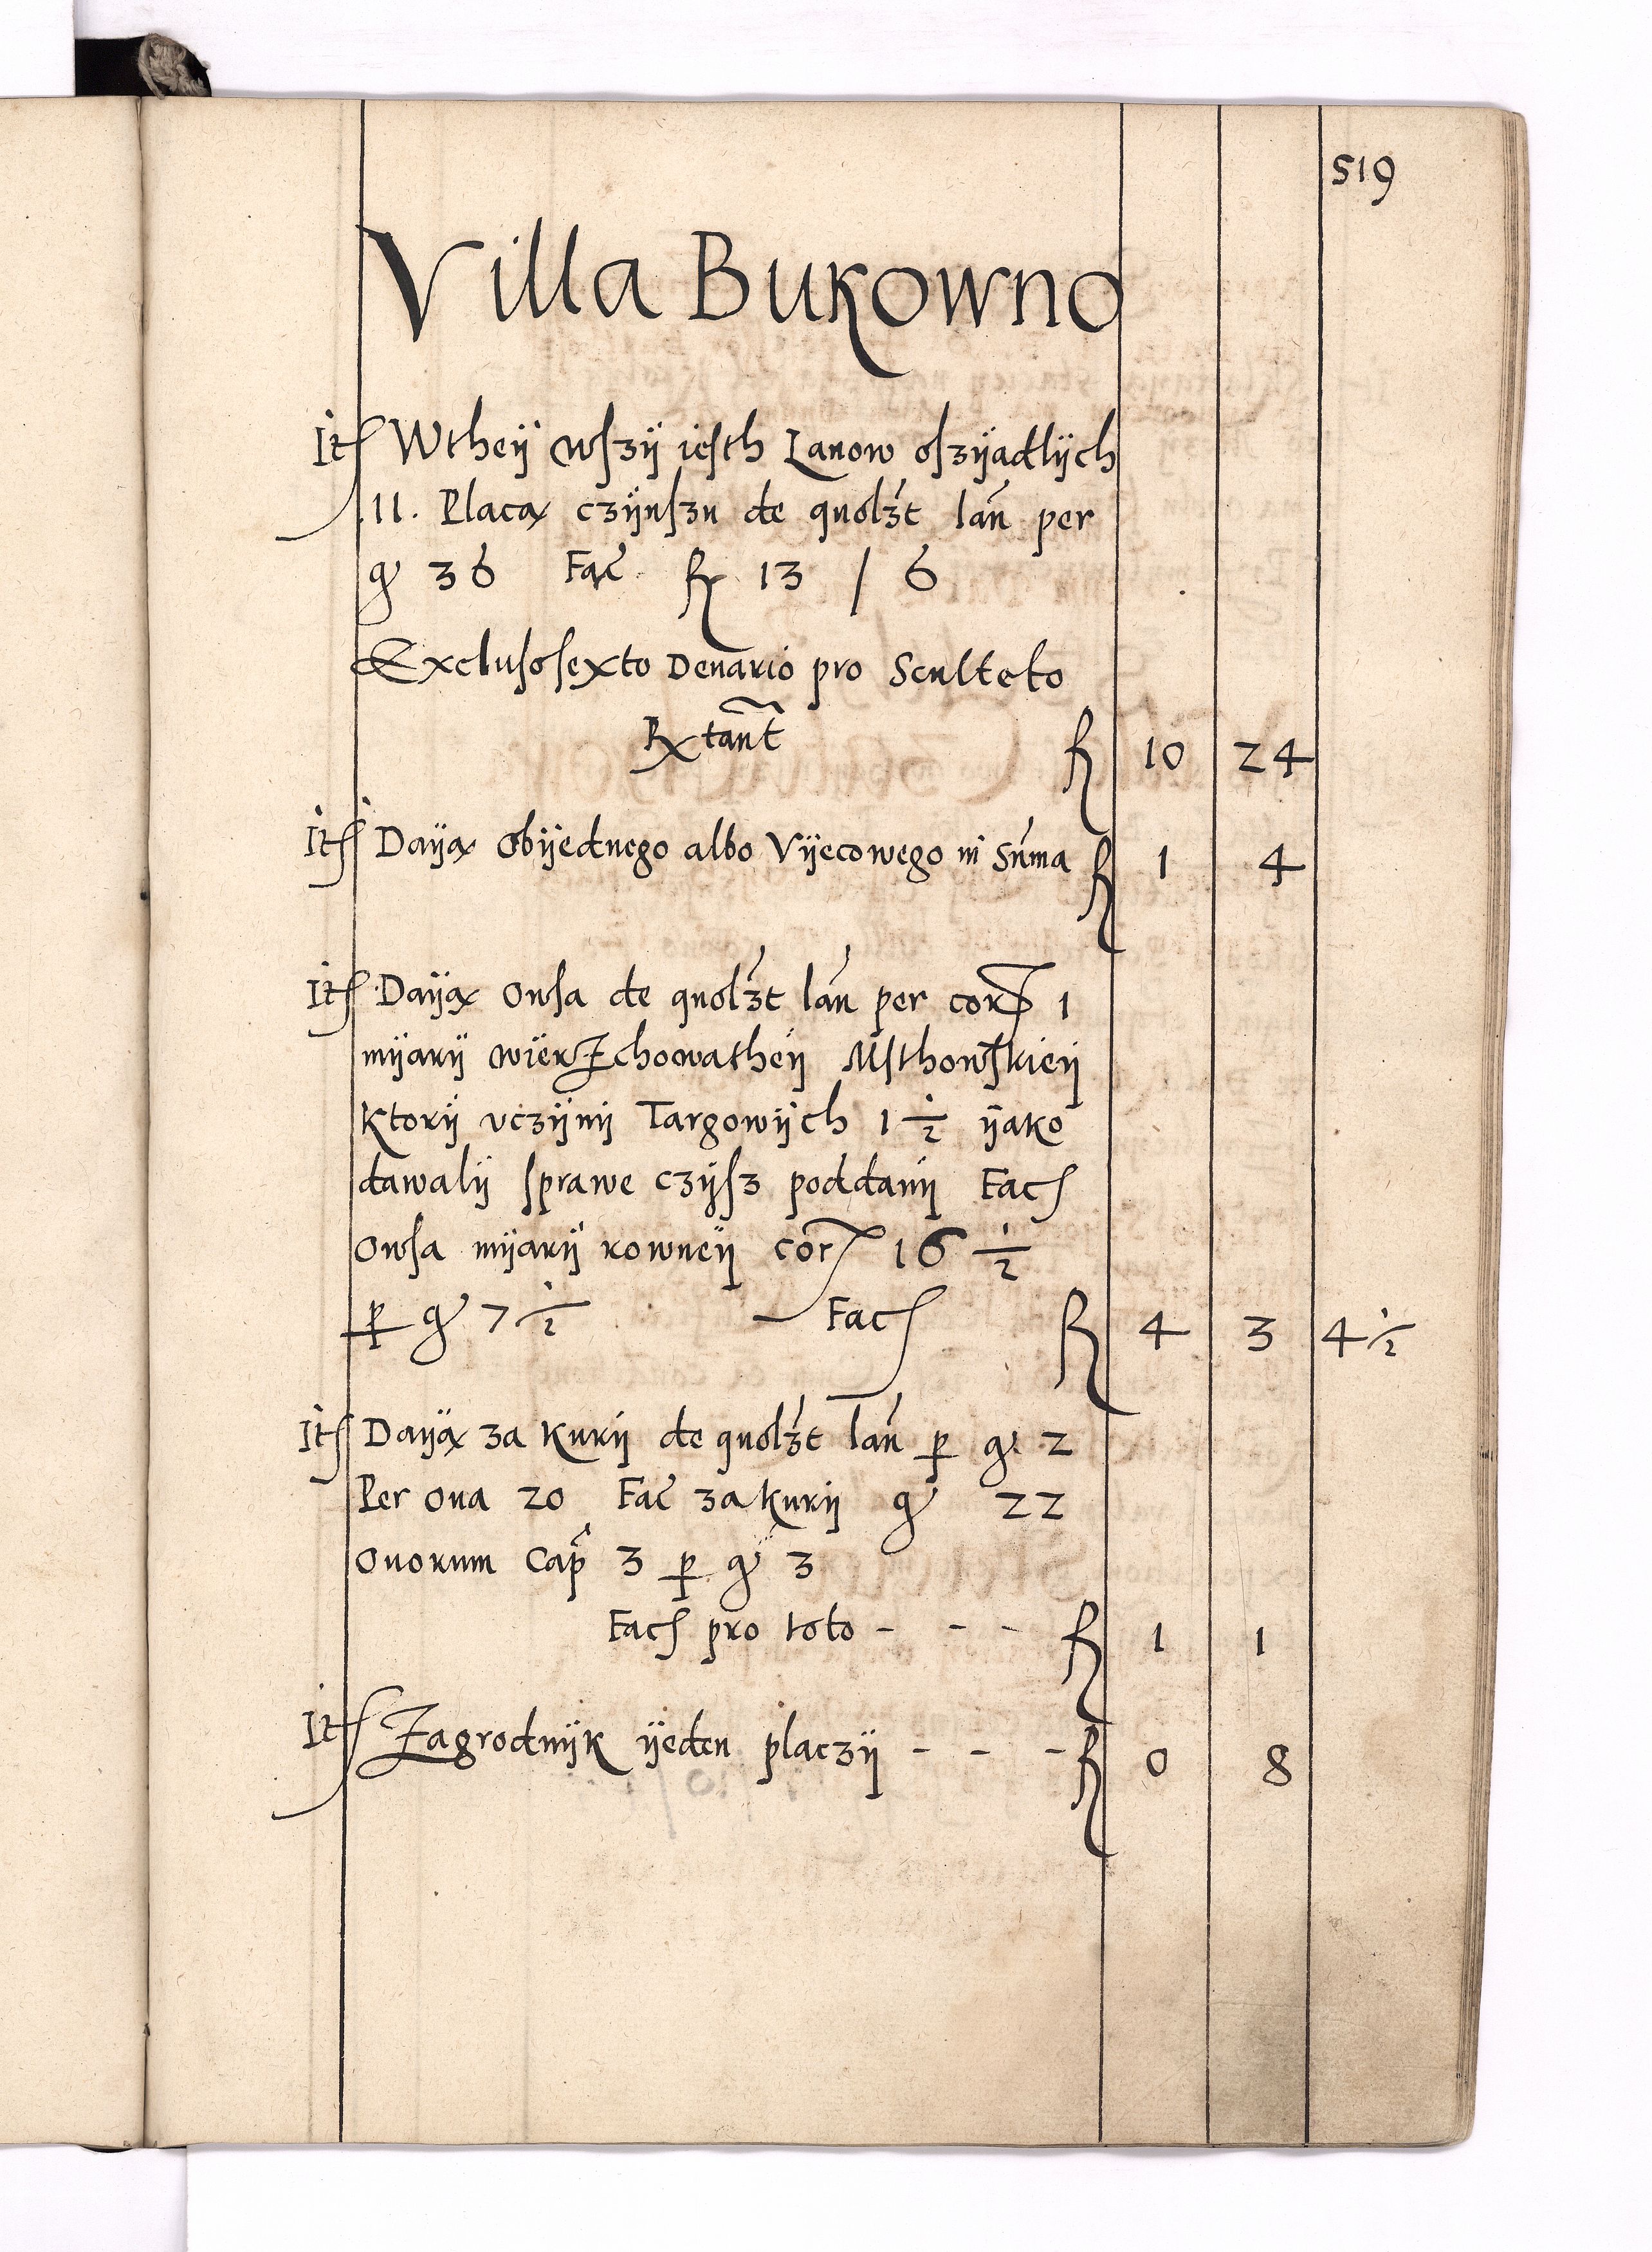 519
Villa Bukowno
Itſ Wtheÿ wſzÿ ieſth Lanow oſzÿadlÿch
.11. Placą czÿnſzu de quolzt lan per
gr 36 Fac fl 13 / 6
Excluſoſexto Denario pro Sculteto
Rxtant fl 10 24
Itſ Daÿą Obÿednego albo Vÿecowego in Sum̄a fl 1 4
Itſ Daÿą Owſa de quolzt lan per cor 1
mÿarÿ wierzchowatheÿ Mſthowſkieÿ
Ktorÿ vczÿnÿ Targowÿch 1 1/2 ÿako
dawalÿ ſprawe czÿſz poddanÿ Facſ
Owſa mÿarÿ rowneÿ cor 16 1/2
ꝑ gr 7 1/2 Facſ fl 4 3 4 1/2
Itſ Daÿą za Kurÿ de quolzt lan ꝑ gr 2
Per oua 20 Fac za kurÿ gr 22
Ouorum Cap 3 ꝑ gr 3
Facſ pro toto - - - fl 1 1
Itſ Zagrodnÿk ÿeden placzÿ - - - fl 0 8